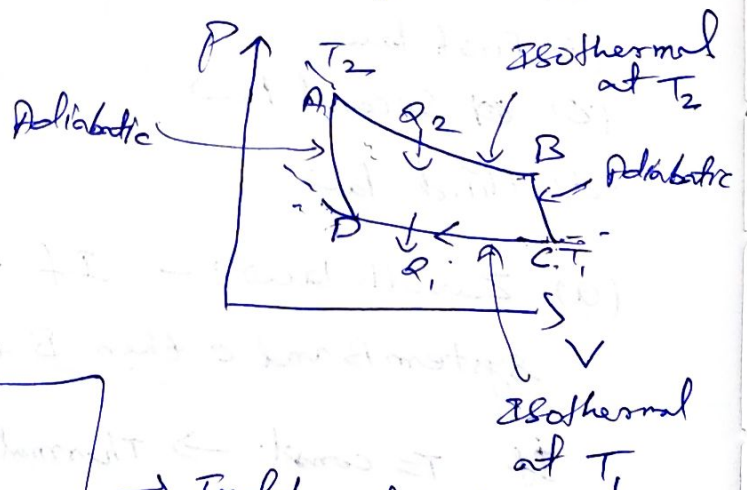 P
T2
Isothermal
at T2
A
Q2
Adiabatic
B
Adiabatic
D
Q1
C
T1
S
V
Isothermal
at T1